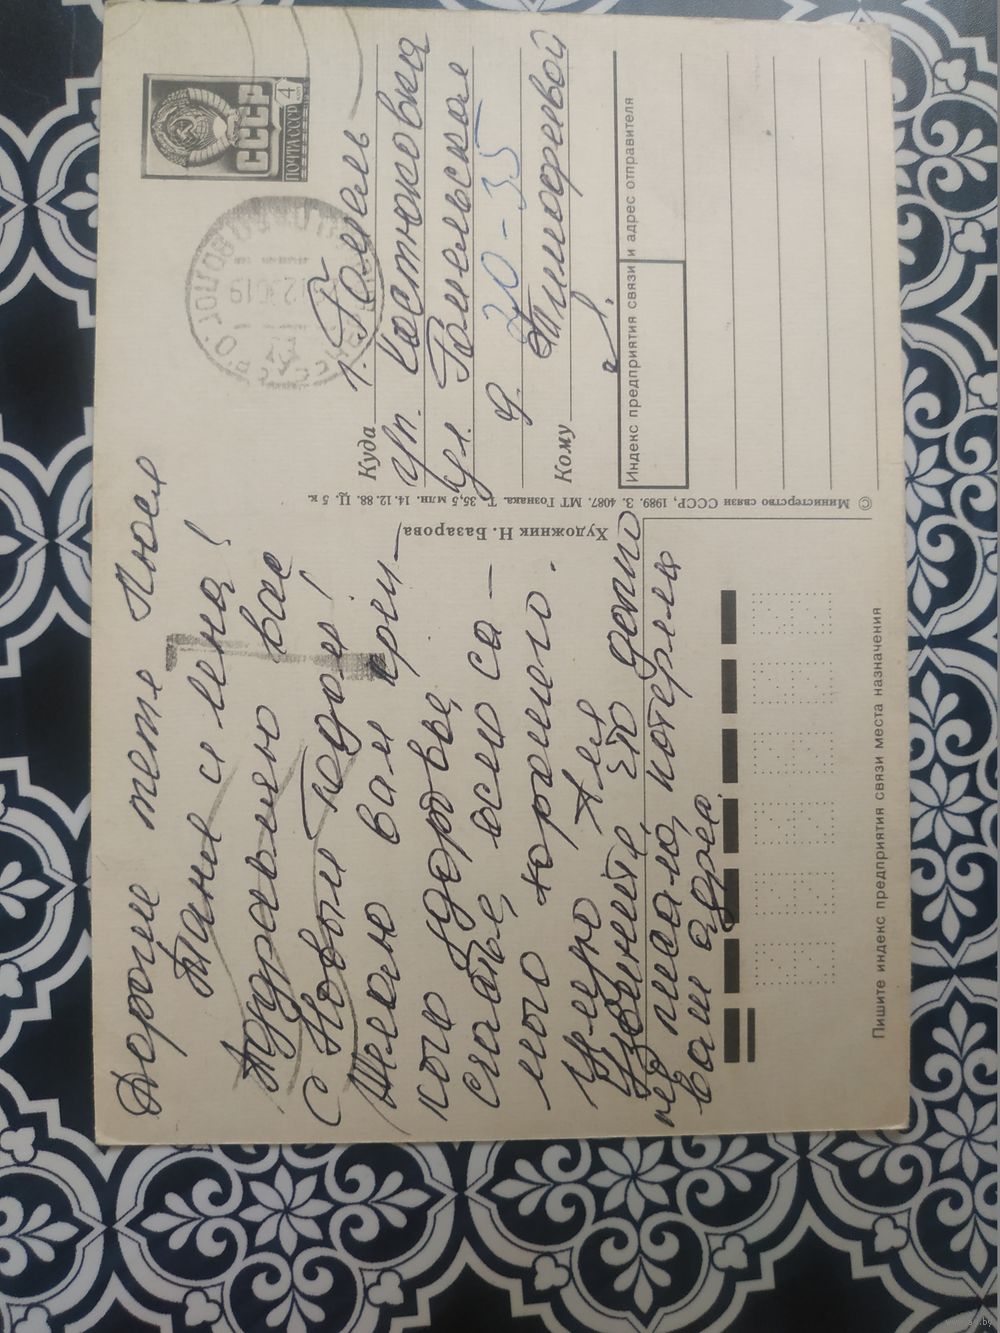 Дорогие тетя Люся
Таня и Лена!
Поздравляю вас
с Новым годом!
Желаю вам креп-
кого здоровье,
счастье, всего са-
мого хорошего.
Целую
Извените, что долго
не писала, потеряла
ваш адрес.
© Министерство связи СССР, 1989. З. 4087. МТ Гознака. Т. 35,5 млн. 14. 12. 88. Ц. 5 к.
Художник Н. Базарова
ПОЧТА СССР
4
КОП
СССР
Куда г. Гомель
ул. Костюковка
ул. Гомельская
д. 20-35
Кому Тимофеевой
Л.
Индекс предприятия связи и адрес отправителя
Пишите индекс предприятия связи места назначения